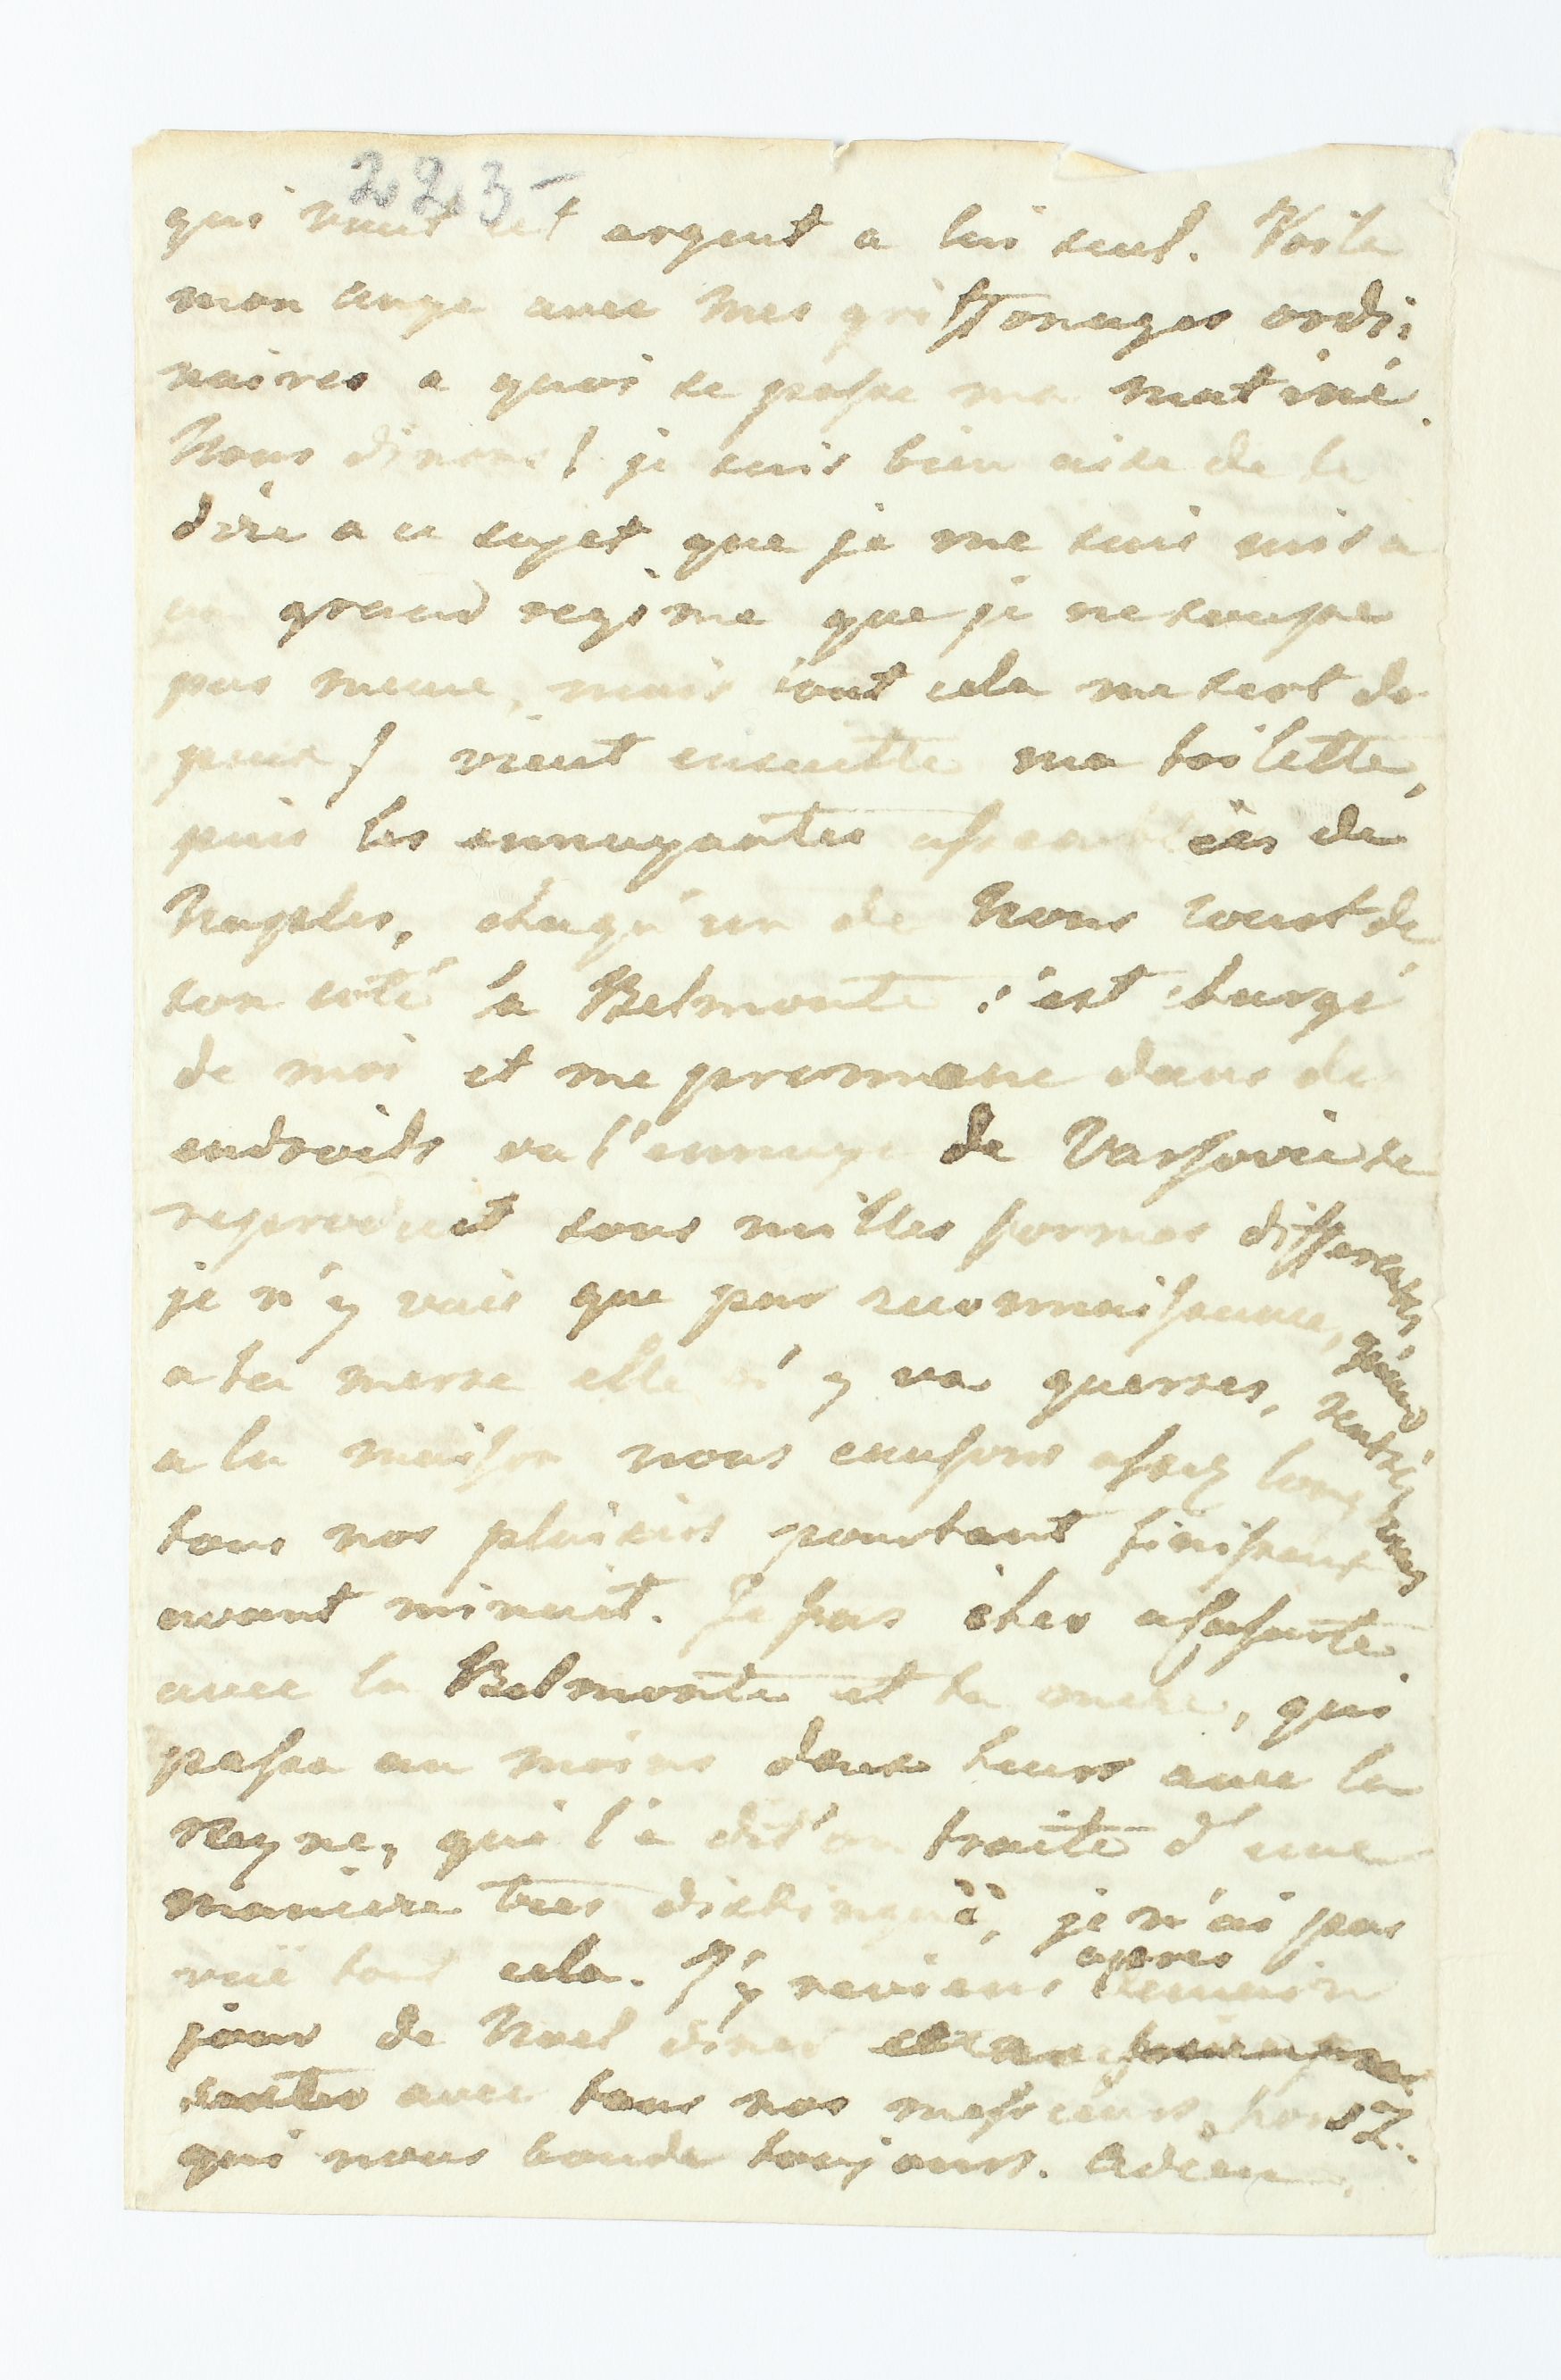 223
qui vaut cet argent a lui seul. Voila
mon ange avec mes griffonages ordi:
naires a quoi se passe ma matiné.
Nous dinons / je suis bien aise de te
dire a ce sujet que je me suis mis a
un grand regime que je ne soupe
pas meme, mais tout cela me sert de
peux / vient ensuitte ma toilette,
puis les ennuyantes assemblées de
Naples, chaqu'un de nous court de
son coté la Belmonte s'est chargé
de moi et me promene dans de
endroits ou l'ennuye de Varsovie se
reproduit sous milles formes differentes,
je n'y vais que par reconnaissance, quand
a ta merre elle n'y va guerres, rentrés
a la maison nous causons assez longtems
tous nos plaisirs pourtant finissent
avant minuit. Je fus hier a
avec la Belmonte et ta mere, qui
passa au moins deux heurs avec la
Reyne, qui l'a dit'on traité d'une
maniere tres distinguëe, je n'ai pas
vuë tout cela. J'y reviens apres demain
jour de Noel diner
avec tous nos messieurs, hors Z.
qui nous boude toujours. Adieu,